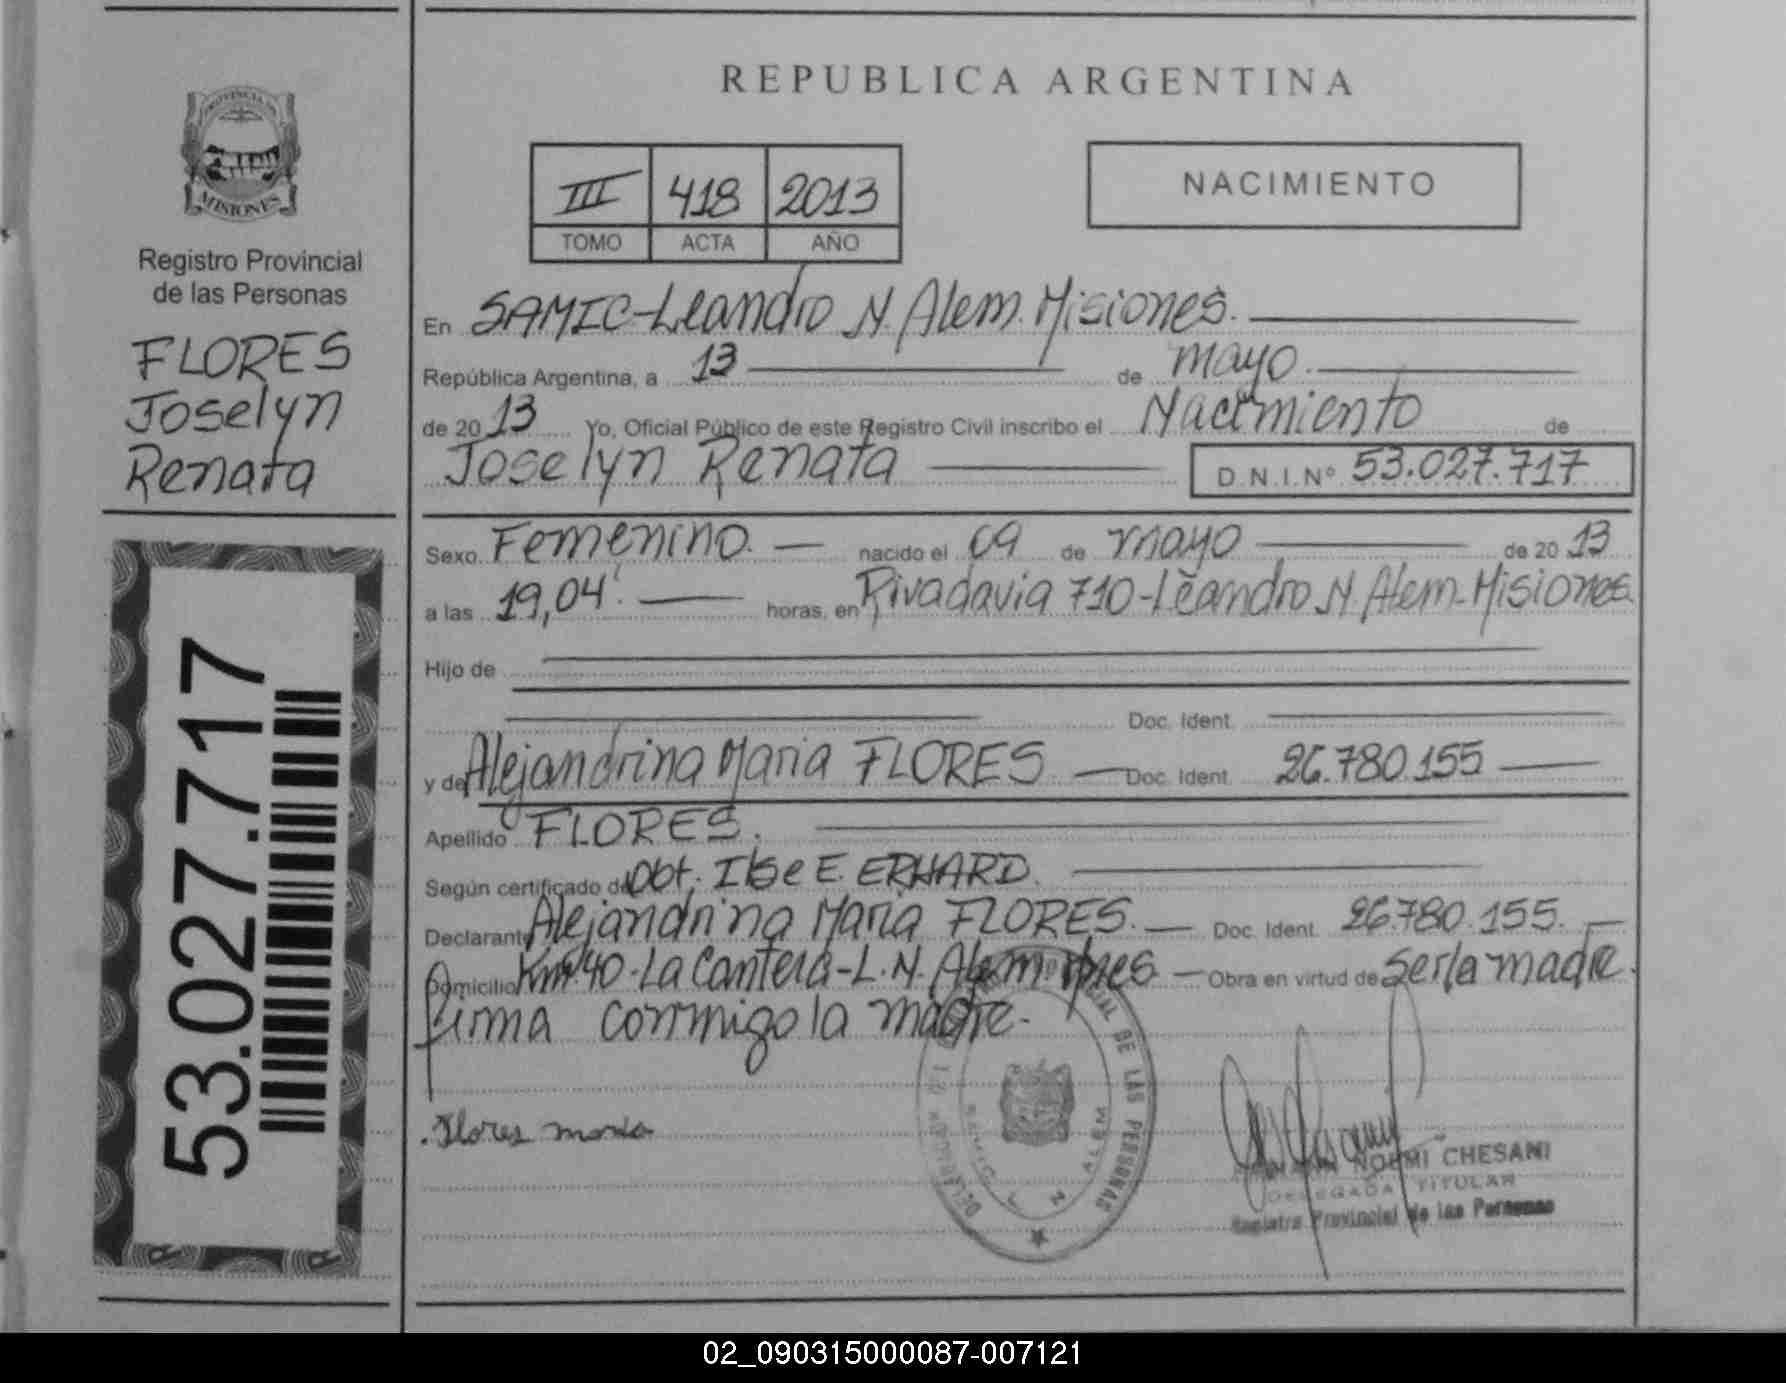 REPUBLICA ARGENTINA
PROVINCIA DE
MISIONES
Registro Provincial
de las Personas
FLORES
Joselyn
Renata
53.027.717
III 418 2013
TOMO ACTA AÑO
NACIMIENTO
En SAMIC-Leandro N. Alem. Misiones.
República Argentina, a 13 de mayo.
de 2013 Yo, Oficial Público de este Registro Civil inscribo el Nacimiento de
Joselyn Renata D.N.I.Nº 53.027.717
Sexo Femenino. nacido el 09 de mayo de 2013
a las 19,04'. horas, en Rivadavia 710-Leandro N. Alem-Misiones.
Hijo de
Doc. Ident.
y de Alejandrina Maria FLORES Doc. Ident. 26.780.155
Apellido FLORES.
Según certificado de Obt. Ilse E. ERHARD.
Declarante Alejandrina Maria FLORES. Doc. Ident. 26.780.155.
Domicilio Km 40-La Cantera-L.N. Alem. Mnes. Obra en virtud de Ser la madre.
Firma conmigo la madre.
Flores maria
DE LAS PERSONAS
NOEMI CHESANI
DELEGADA TITULAR
Registro Provincial de las Personas
02_090315000087-007121